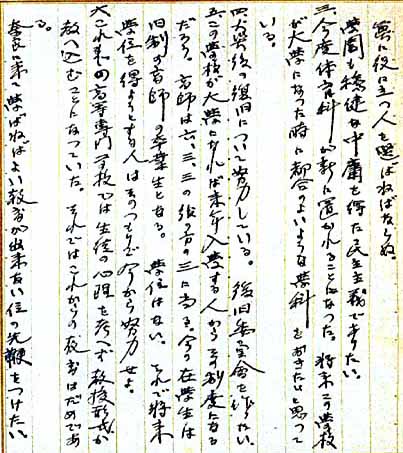 実に役に立つ人を選ばねばならぬ。
学園も穏健な中庸を得た民主主義でありたい。
三、今度体育科が新に置かれることになつた。将来この学校
が大学になつた時に都合のよいような学科をおきたいと思つて
いる。
四、火災後の復旧について努力している。復旧委員会を作りたい。
五、この学校が大学になれば来年入学する人からその制度になる
だろう。高師は六、三、三の後の三に当る。今の在学生は
旧制の高師の卒業生となる。学位はない。それで将来
学位を得ようとする人はそのつもりで今から努力せよ。
六、これまでの高等専門学校では生徒の心理を考へず教授形式が
教へ込むことになつていた。それではこれからの教育はだめであ
る。
奈良に来て学ばねばよい教育が出来ない位の先鞭をつけたい。